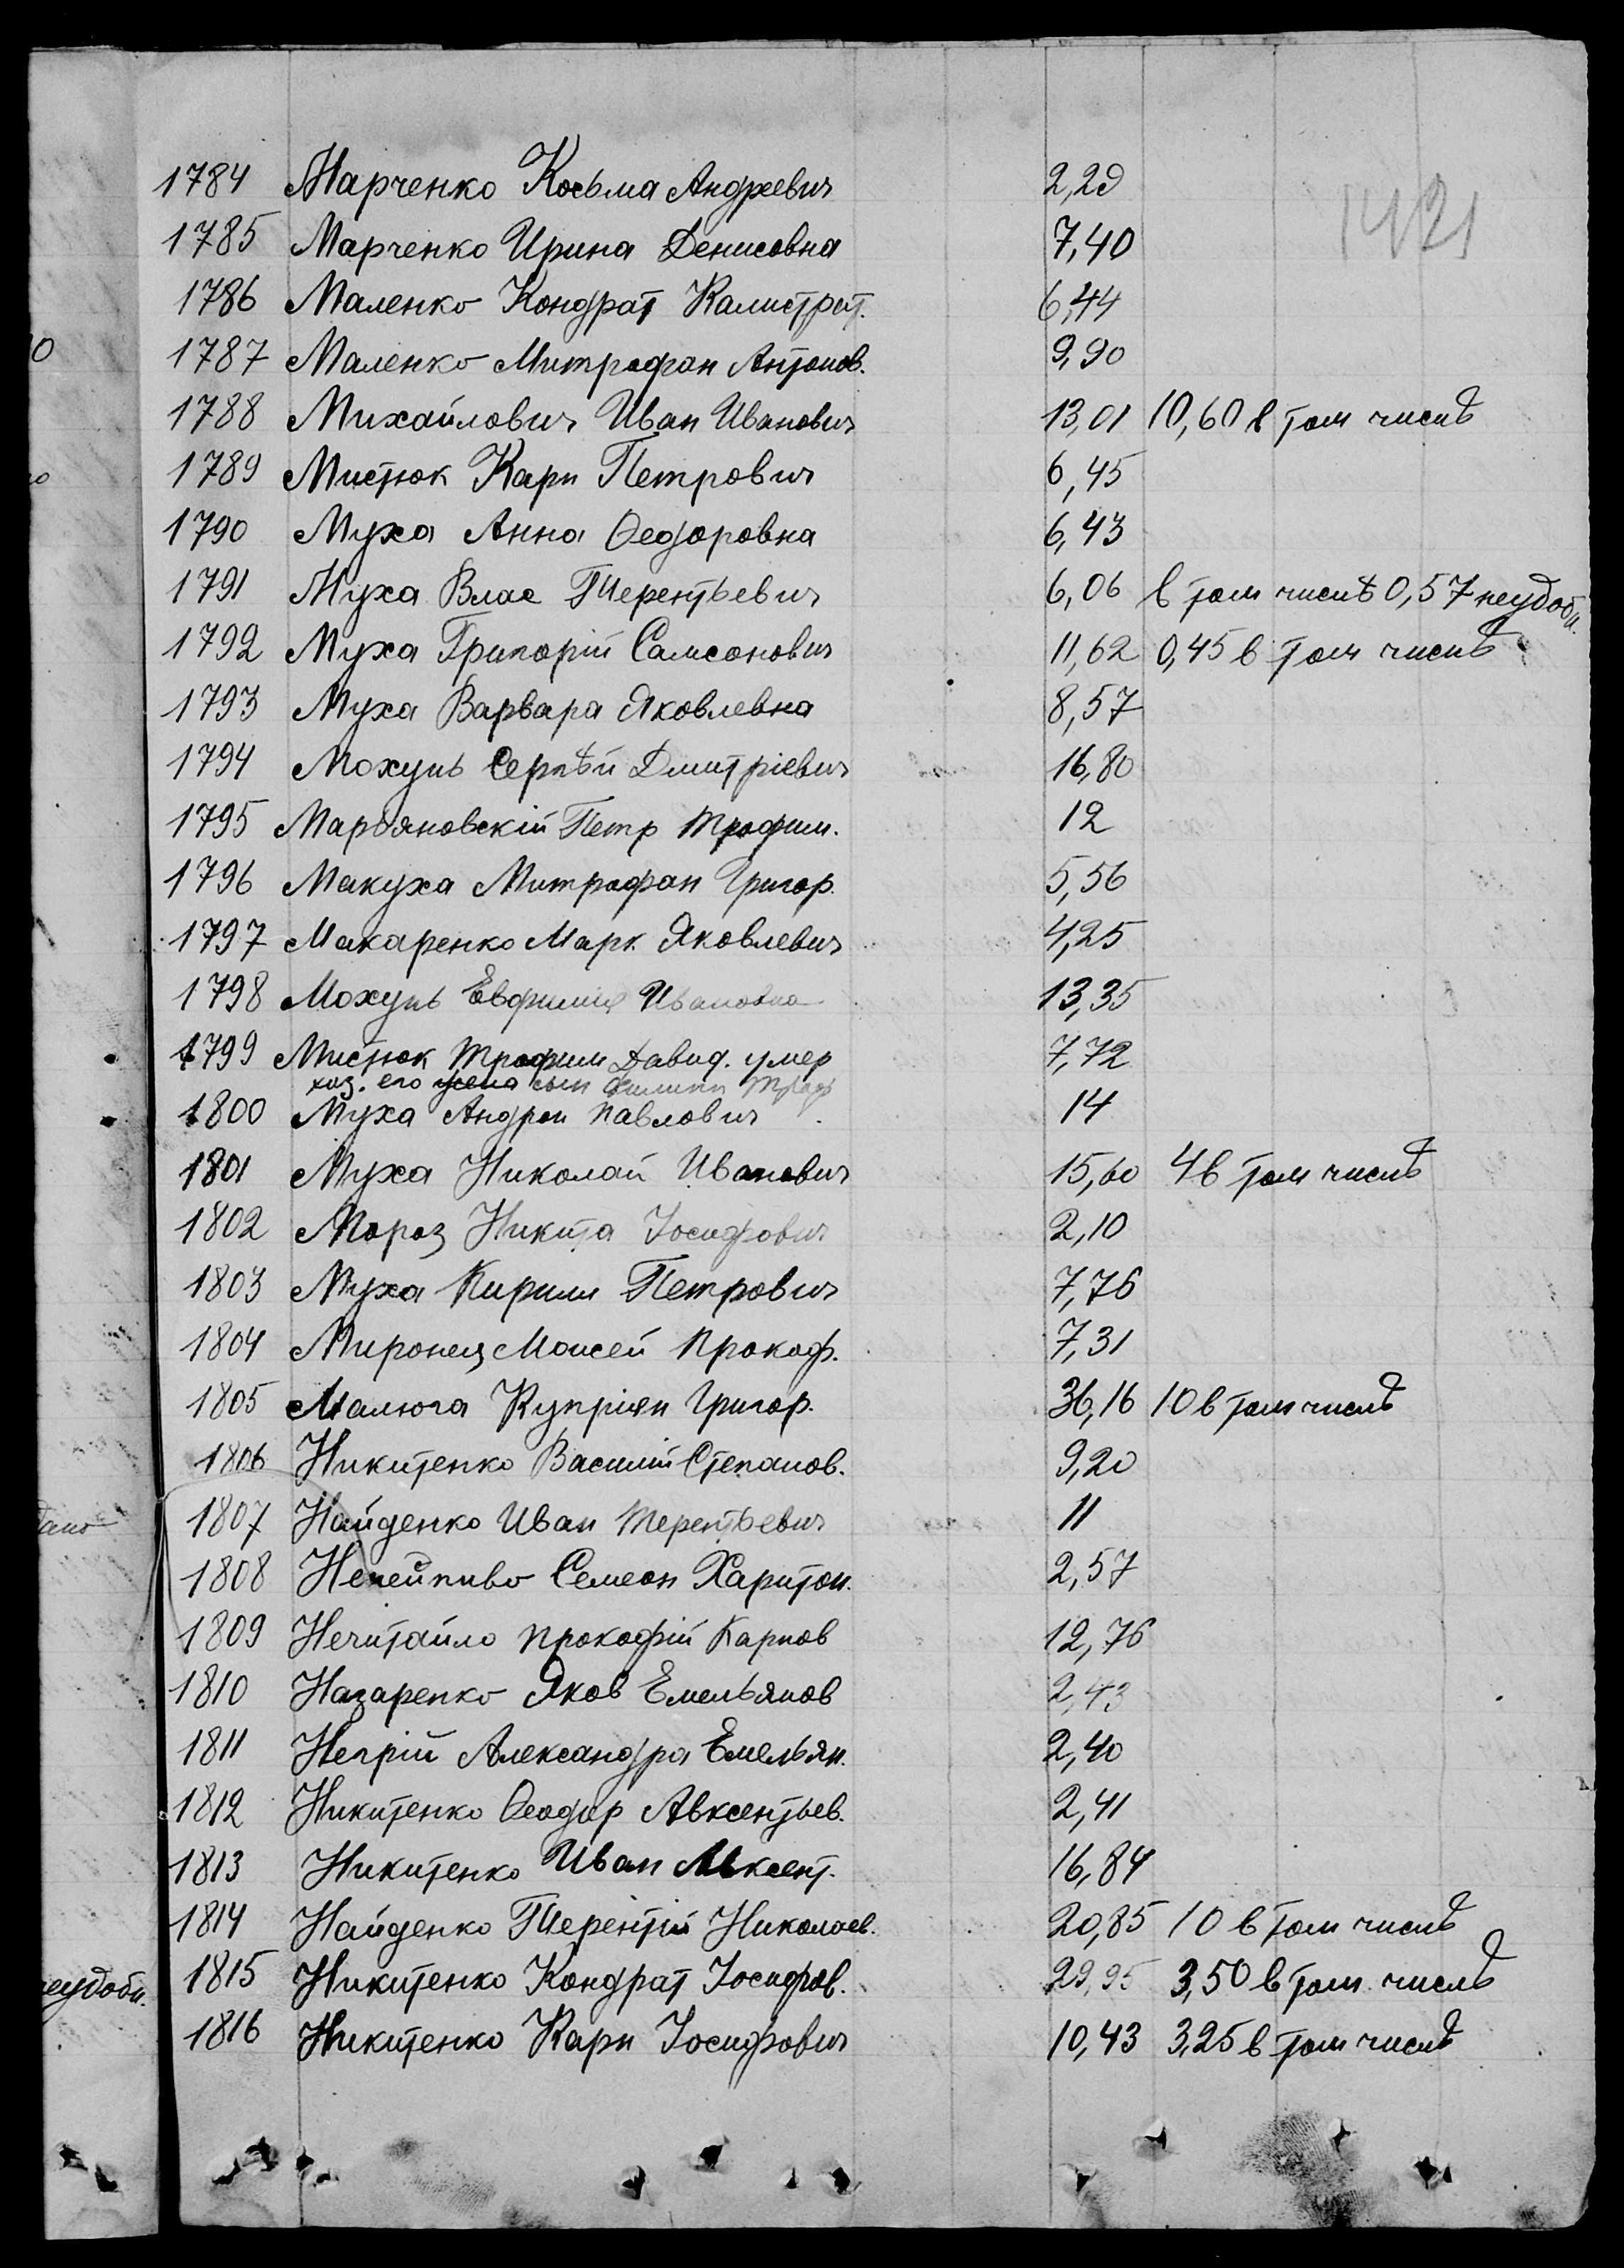 1421
1784 Марченко Косьма Андреевич 2,29
1785 Марченко Ирина Денисовна 7,40
1786 Маленко Кондрат Калистрат. 6,44
1787 Маленко Митрофан Антонов. 9,90
1788 Михайлович Иван Иванович 13,01 10,60 в том числѣ
1789 Мистюк Карп Петрович 6,45
1790 Муха Анна Ѳеодоровна 6,43
1791 Муха Влас Терентьевич 6,06 в том числѣ 0,57 неудобн.
1792 Муха Григорій Самсонович 11,62 0,45 в том числѣ
1793 Муха Варвара Яковлевна 8,57
1794 Мохунь Сергѣй Дмитріевич 16,80
1795 Марьяновскій Петр Трофим. 12
1796 Макуха Митрофан Григор. 5,56
1797 Макаренко Марк Яковлевич 4,25
1798 Мохунь Евфимія Ивановна 13,35
1799 Мистюк Трофим Давид. умер 7,72
хоз. его жена сын Филипп Троф
1800 Муха Андрей Павлович 14
1801 Муха Николай Иванович 15,60 4 в том числѣ
1802 Мороз Никита Іосифович 2,10
1803 Муха Кирилл Петрович 7,76
1804 Миронец Моисей Прокоф. 7,31
1805 Малюга Куприян Григор. 36,16 10 в том числѣ
1806 Никитенко Василій Степанов. 9,20
1807 Найденко Иван Терентьевич 11
тано
1808 Непейпиво Семеон Харитон. 2,57
1809 Нечитайло Прокофій Карпов 12,76
1810 Назаренко Яков Емельянов 2,43
1811 Негрій Александра Емельян. 2,40
1812 Никитенко Ѳеодор Авксентьев. 2,41
1813 Никитенко Иван Авксент. 16,84
1814 Найденко Терентій Николаев. 20,85 10 в том числѣ
1815 Никитенко Кондрат Іосифов. 29,95 3,50 в том числѣ
неудобн.
1816 Никитенко Карп Іосифович 10,43 3,25 в том числѣ